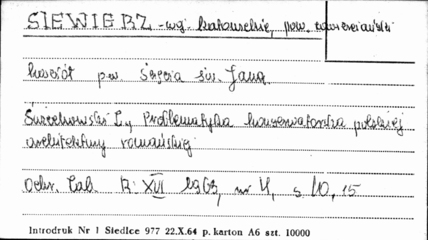 SIEWIERZ - wg. katowickie, pow. zawierciański
kościół p.w. Ścięcia św. Jana
Świechowski Z., Problematyka konserwatorska polskiej
architektury romańskiej
Ochr. Zab. R. XVI 1963, nr 4, s. 10, 15
Introdruk Nr 1 Siedlce 977 22.X.64 p. karton A6 szt. 10000